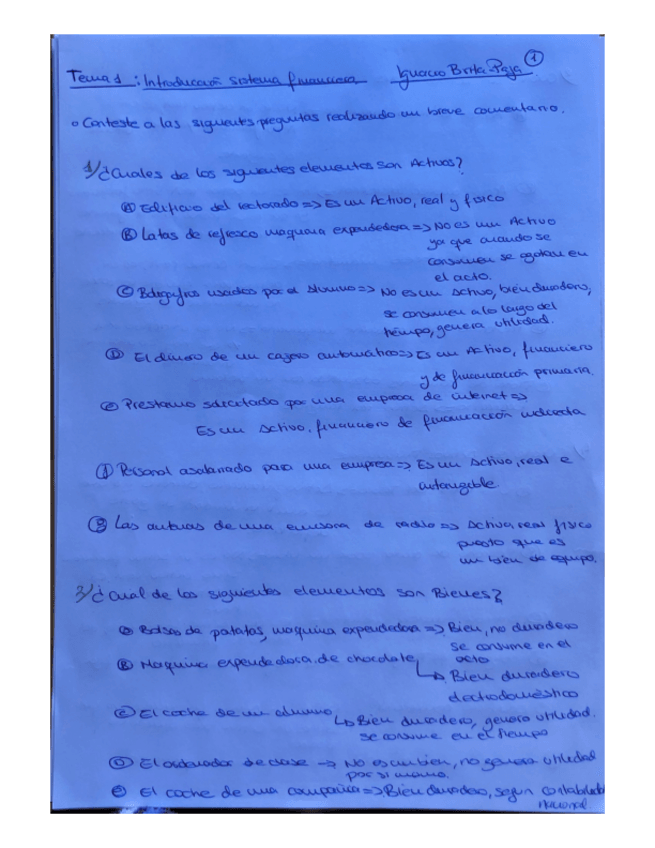 Tema 1: Introducción sistema financiero Ignacio Brita-Paja 1
Conteste a las siguientes preguntas realizando un breve comentario.
1/ ¿Cuales de los siguientes elementos son Activos?
A Edificio del rectorado => Es un Activo, real y fisico
B Latas de refresco maquina expendedora => No es un Activo
ya que cuando se
consumen se agotan en
el acto.
C Bolígrafos usados por el alumno => No es un activo, bien duradero,
se consumen a lo largo del
tiempo, genera utilidad.
D El dinero de un cajero automático => Es un Activo, financiero
y de financiación primaria.
e Prestamo solicitado por una empresa de internet =>
Es un activo. financiero de financiación indirecta
f Personal asalariado para una empresa => Es un activo, real e
intangible
g Las antenas de una emisora de radio => Activo, real fisico
puesto que es
un bien de equipo.
3/ ¿Cual de los siguientes elementos son Bienes?
a Bolsas de patatas, maquina expendedora => Bien, no duradero
se consume en el
acto
B Maquina expendedora de chocolate
Bien duradero
electrodoméstico
c El coche de un alumno
Bien duradero, genera utilidad.
se consume en el tiempo
D El ordenador de clase -> No es un bien, no genera utilidad
por si mismo.
e El coche de una compañia => Bien duradero, segun contabilidad
nacional.